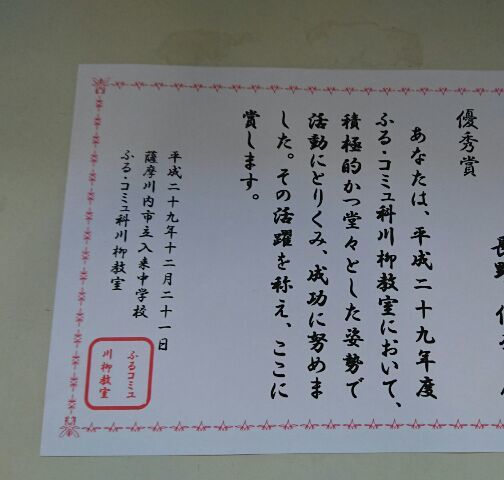 優秀賞
長野
あなたは、平成二十九年度
ふる・コミュ科川柳教室において、
積極的かつ堂々とした姿勢で
活動にとりくみ、成功に努めま
した。その活躍を称え、ここに
賞します。
平成二十九年十二月二十一日
薩摩川内市立入来中学校
ふる・コミュ科川柳教室
ふるコミュ
川柳教室